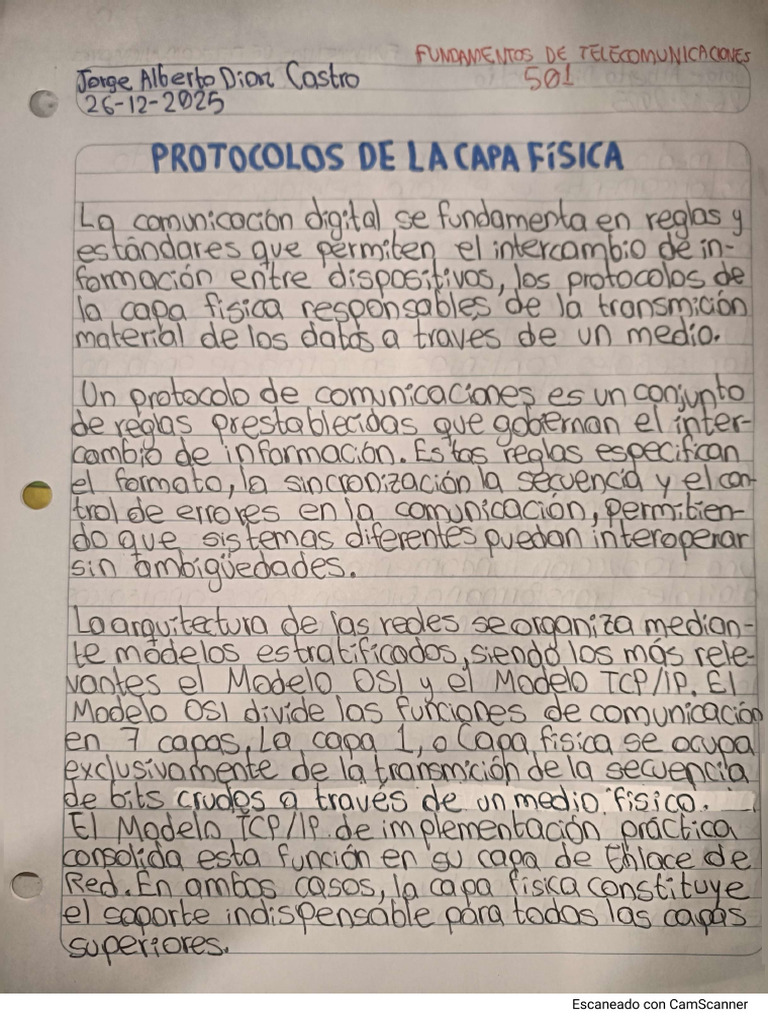 FUNDAMENTOS DE TELECOMUNICACIONES
501
Jorge Alberto Dion Castro
26-12-2025
PROTOCOLOS DE LA CAPA FíSICA
La comunicación digital se fundamenta en reglas y
estándares que permiten el intercambio de in-
formación entre dispositivos, los protocolos de
la capa fisica responsables de la transmición
material de los datos a traves de un medio.
Un protocolo de comunicaciones es un conjunto
de reglas prestablecidas que gobiernan el inter-
cambio de información. Estas reglas especifican
el formato, la sincronización la secuencia y el con-
trol de errores en la comunicación, permitien-
do que sistemas diferentes puedan interoperar
sin ambigüedades.
La arquitectura de las redes se organiza median-
te modelos estratificados, siendo los más rele-
vantes el Modelo OSI y el Modelo TCP/IP. El
Modelo OSI divide las funciones de comunicación
en 7 capas, La capa 1, o Capa fisica se ocupa
exclusivamente de la transmición de la secuencia
de bits crudos a través de un medio fisico.
El Modelo TCP/IP de implementación práctica
consolida esta función en su capa de Enlace de
Red. En ambos casos, la capa fisica constituye
el soporte indispensable para todas las capas
superiores.
Escaneado con CamScanner